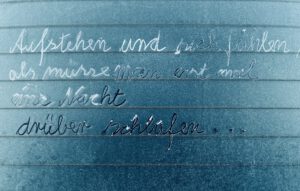 Aufstehen und sich fühlen
als müsse man erst mal
eine Nacht
drüber schlafen...